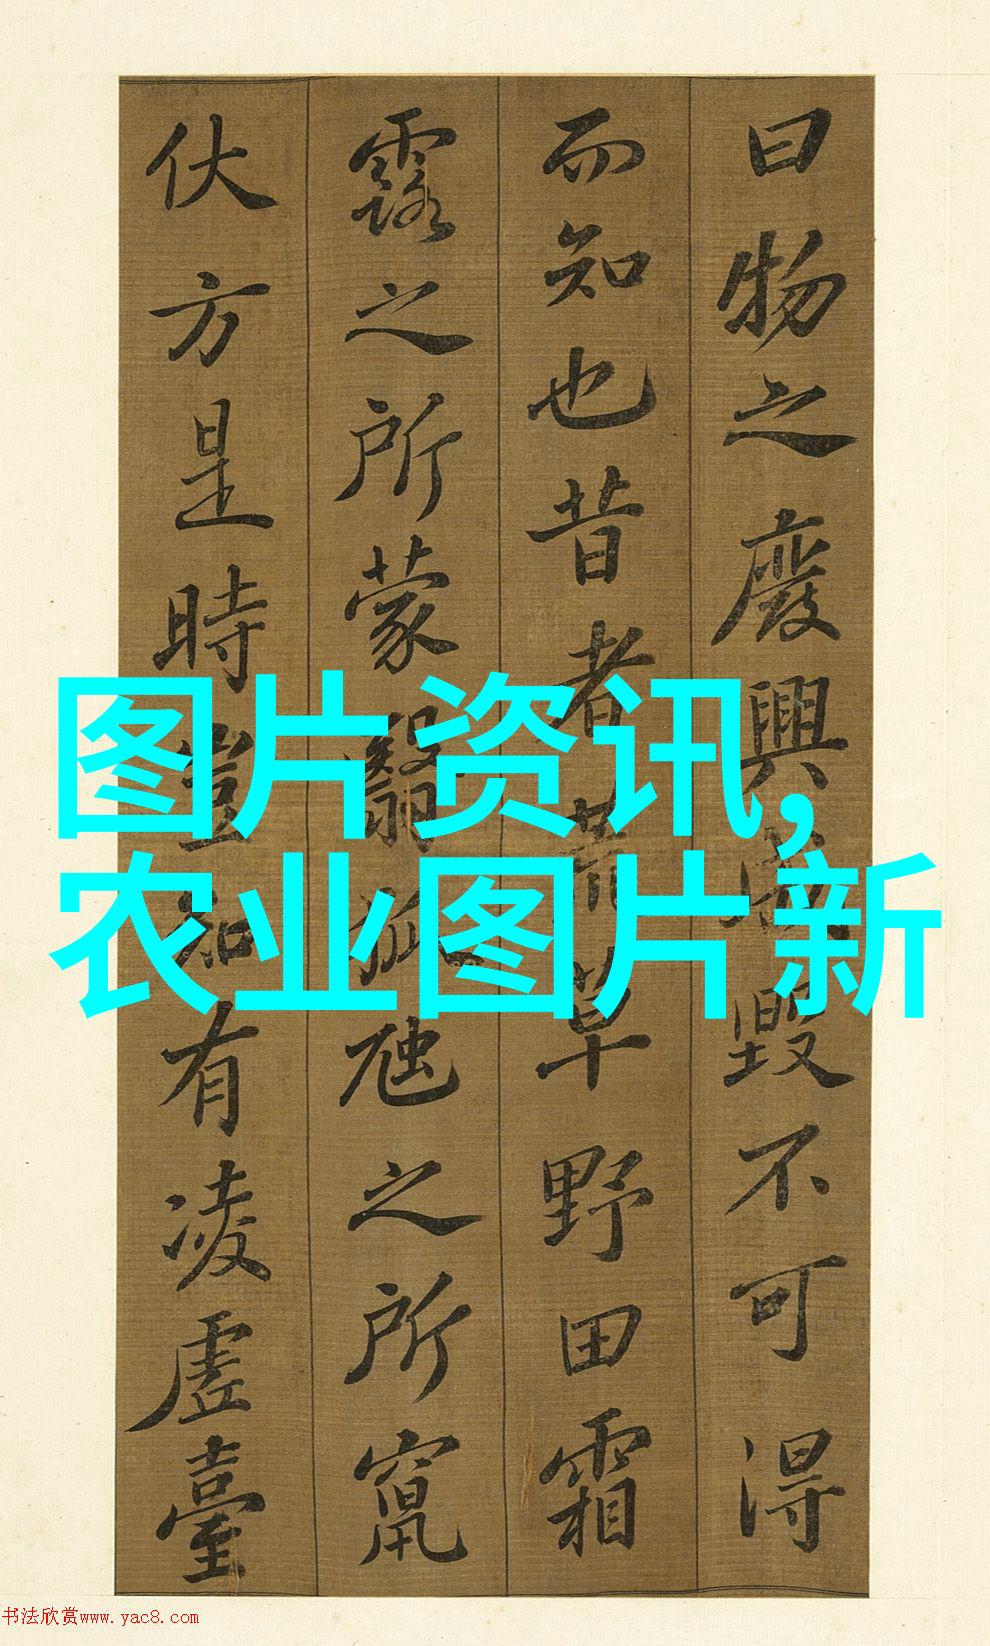 曰物之廢興成毀不可得
而知也昔者荒草野田霜
露之所蒙翳狐虺之所竄
伏方是時豈知有凌虛臺
图片资讯,
农业图片新
书法欣赏www.yac8.com